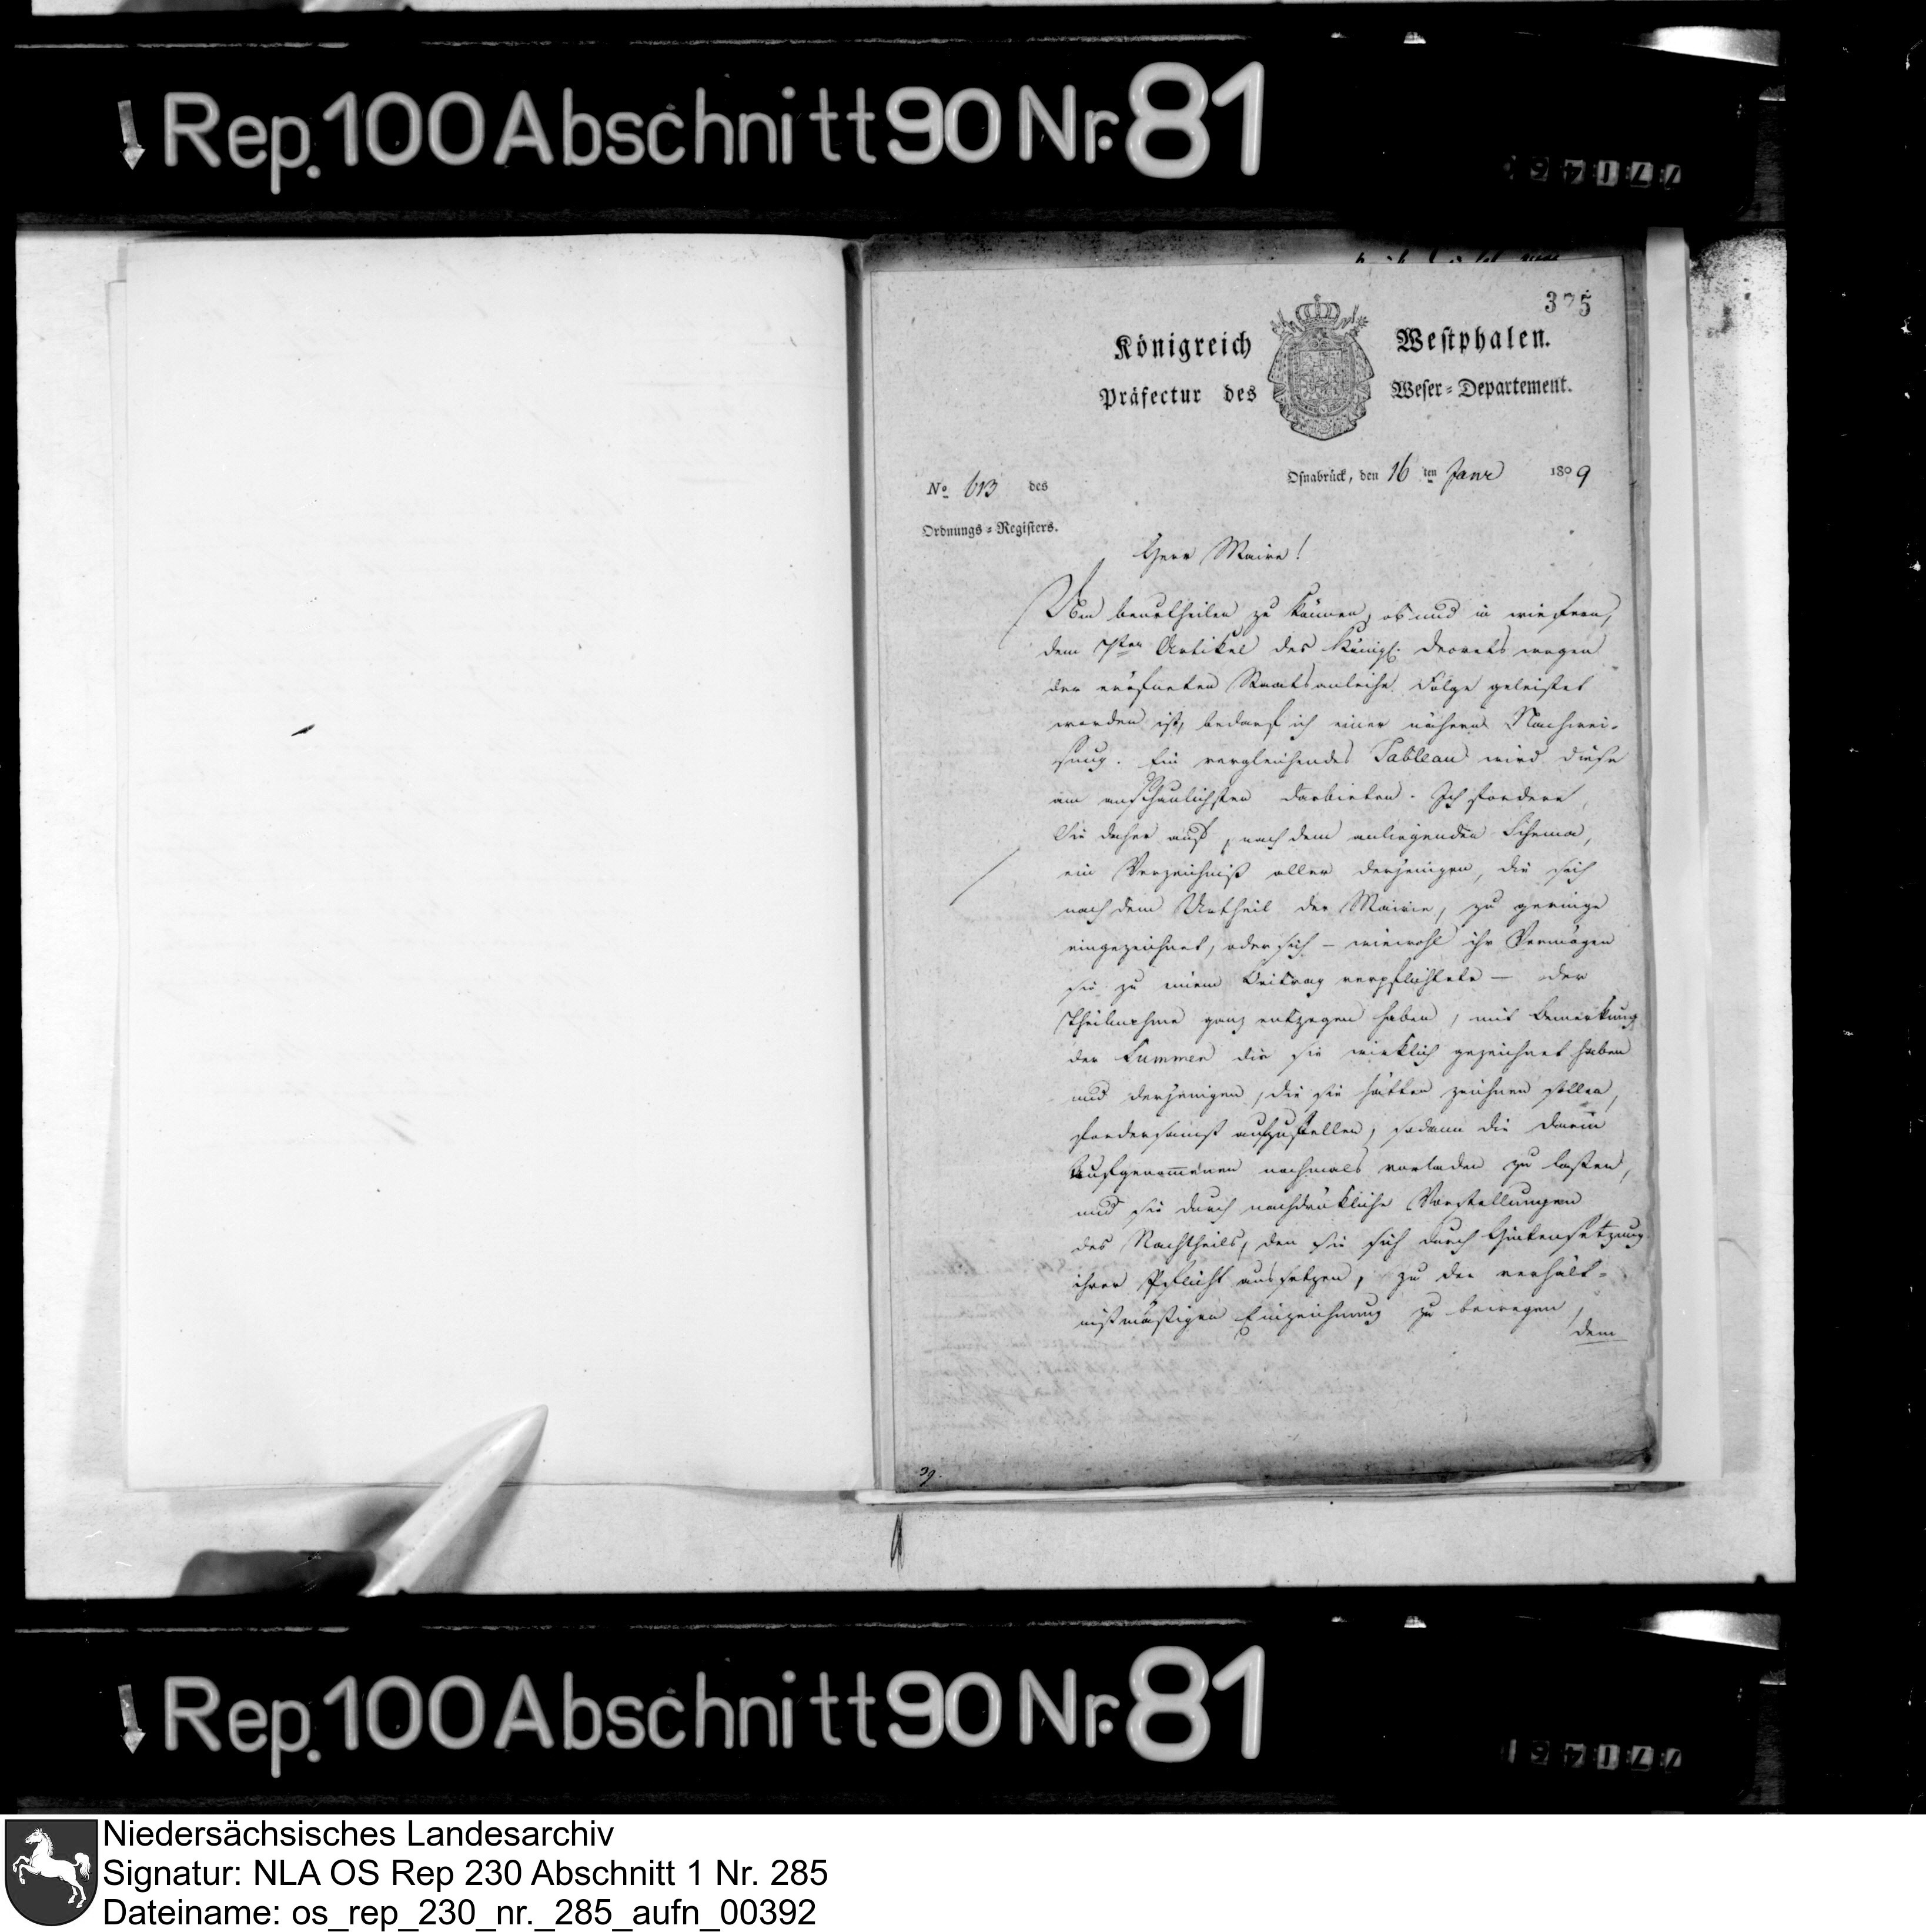 Rep. 100 Abschnitt 90 Nr. 81
375
Königreich Westphalen.
Präfectur des Weser-Departement.
Osnabrück, den 16 ten Janr 1809
No 613 des
Ordnungs-Registers.
Herr Maire!
Um beurtheilen zu können, ob und in wiefern,
dem 7ten Artikel des Königl. Decrets wegen
der eröfneten Staatsanleihe Folge geleistet
worden ist, bedarf ich einer nähern Nachwei-
sung. Ein vergleichendes Tableau wird diese
am anschaulichsten darbieten. Ich fordere
Sie daher auf, nach dem anliegenden Schema,
ein Verzeichniß aller derjenigen, die sich
nach dem Urtheil der Mairie, zu geringe
eingezeichnet, oder sich – wiewohl ihr Vermögen
sie zu einem Beitrag verpflichtete – der
Theilnahme ganz entzogen haben, mit Bemerkung
der Summen die sie wirklich gezeichnet haben
und derjenigen, die sie hätten zeichnen sollen,
fordersamst aufzustellen, sodann die darin
Aufgenommenen nochmals vorladen zu lassen,
und sie durch nachdrükliche Vorstellungen
des Nachtheils, den sie sich durch Hintensetzung
ihrer Pflicht aussetzen, zu der verhält-
nißmäßigen Einzeichnung zu bewegen,
dem
39.
Rep. 100 Abschnitt 90 Nr. 81
Niedersächsisches Landesarchiv
Signatur: NLA OS Rep 230 Abschnitt 1 Nr. 285
Dateiname: os_rep_230_nr._285_aufn_00392